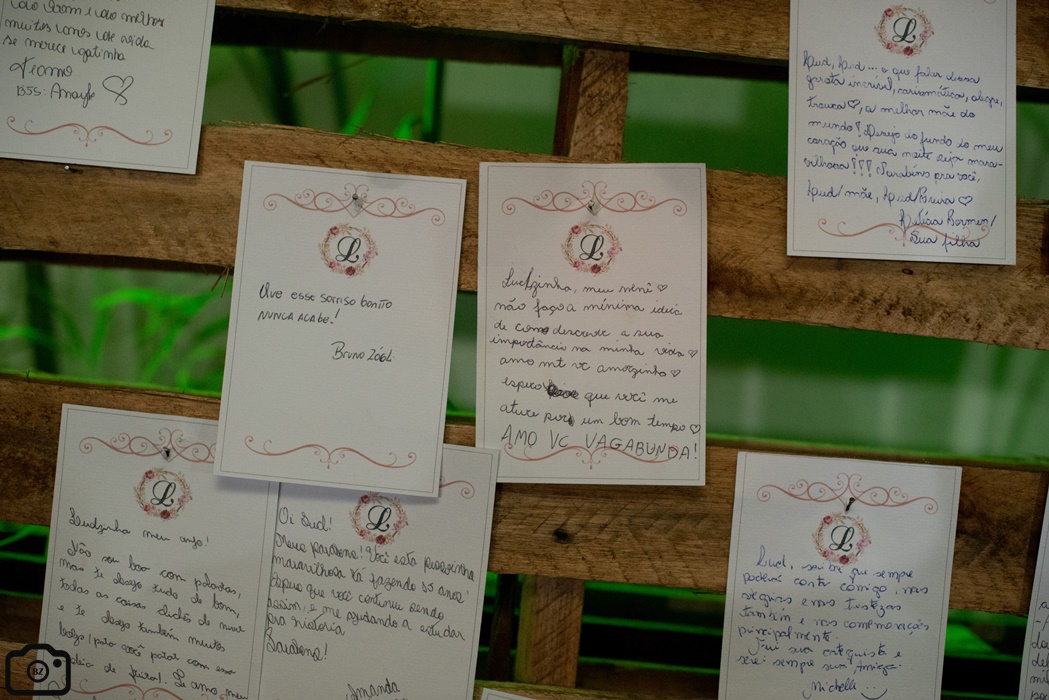 muitos anos de vida
se merece
Tiamo
BSS: Anayle
L
Lud, Lud ... o que falar dessa
garota incrível, carismática, alegre,
trouca♡, a melhor mãe do
mundo! Desejo do fundo do meu
coração que sua noite seja mara-
vilhosa!!! Parabéns pra você,
Lud/mãe, Lud/
Letícia
Sua filha
L
Que esse sorriso bonito
NUNCA ACABE!
Bruno
L
Ludzinha, meu nenê ♡
não faço a mínima ideia
de como descrever a sua
importância na minha vida ♡
amo mt vc amorzinho ♡
espero que você me
ature por um bom tempo ♡
AMO VC VAGABUNDA!
L
Ludzinha meu anjo!
Não sou boa com palavras,
mas te desejo tudo de bom,
todas as coisas clichês do mundo
e te desejo também muitos
Te amo, meu
L
Oi Lud!
Meus parabéns! Você está
maravilhosa tá fazendo 15 anos!
Espero que você continue sendo
assim, e me ajudando a estudar
pra história
Parabéns!
Amanda
L
Lud, saiba que sempre
poderá contar comigo, nas
alegrias e nas tristezas
também e nas comemorações
principalmente.
Fui sua catequista e
serei sempre sua Amiga.
Michelli
BZ